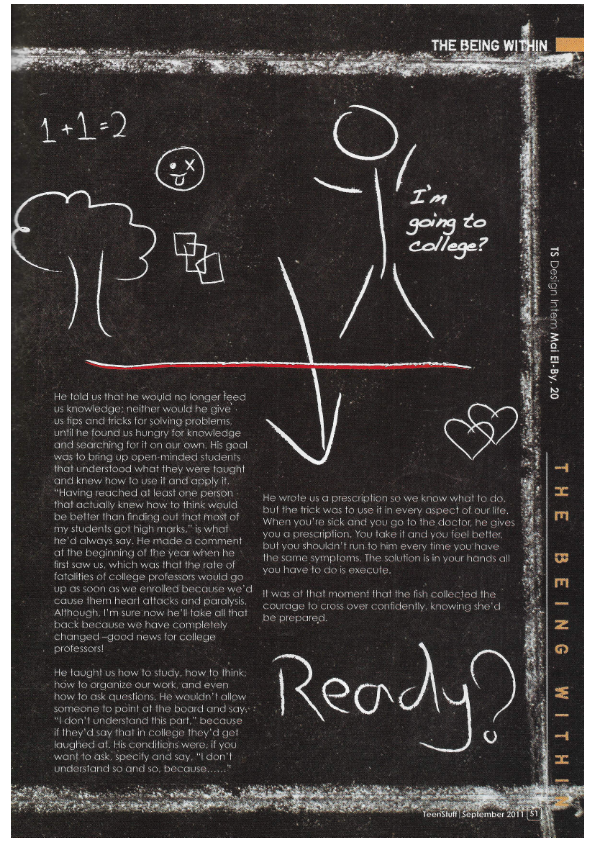 THE BEING WITHIN
1+1=2
I'm
going to
college?
TS Design Intern Mai El-By, 20
He told us that he would no longer feed
us knowledge; neither would he give
us tips and tricks for solving problems,
until he found us hungry for knowledge
and searching for it on our own. His goal
was to bring up open-minded students
that understood what they were taught
and knew how to use it and apply it.
"Having reached at least one person
that actually knew how to think would
be better than finding out that most of
my students got high marks," is what
he'd always say. He made a comment
at the beginning of the year when he
first saw us, which was that the rate of
fatalities of college professors would go
up as soon as we enrolled because we'd
cause them heart attacks and paralysis.
Although, I'm sure now he'll take all that
back because we have completely
changed –good news for college
professors!
He taught us how to study, how to think,
how to organize our work, and even
how to ask questions. He wouldn't allow
someone to point at the board and say,
"I don't understand this part," because
if they'd say that in college they'd get
laughed at. His conditions were, if you
want to ask, specify and say, "I don't
understand so and so, because……"
He wrote us a prescription so we know what to do,
but the trick was to use it in every aspect of our life.
When you're sick and you go to the doctor, he gives
you a prescription. You take it and you feel better,
but you shouldn't run to him every time you have
the same symptoms. The solution is in your hands all
you have to do is execute.
It was at that moment that the fish collected the
courage to cross over confidently, knowing she'd
be prepared.
Ready?
THE BEING WITHIN
TeenStuff|September 2011 51